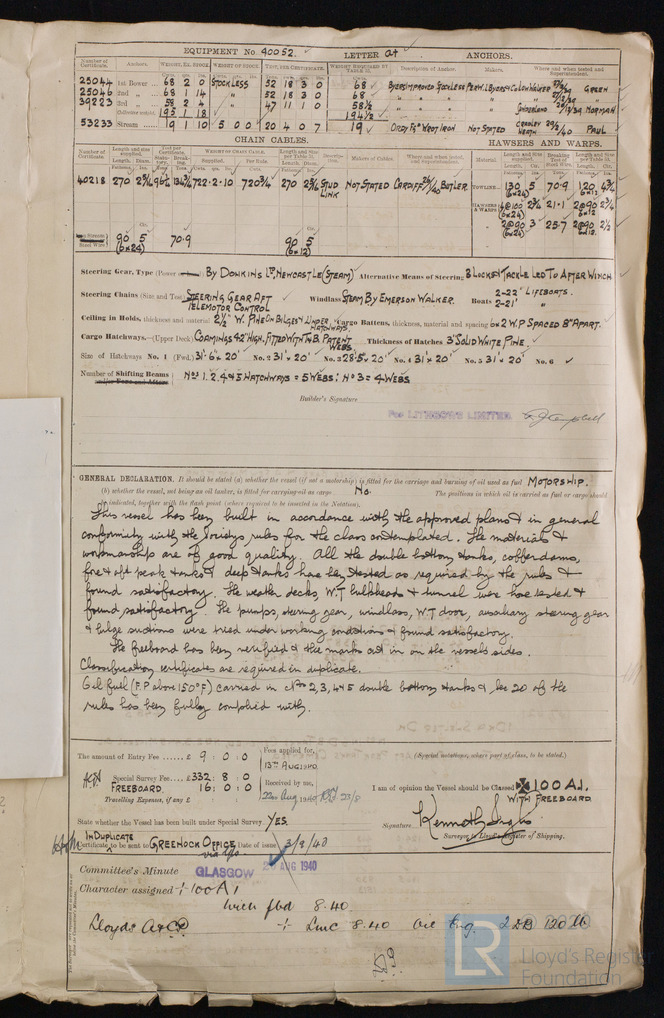 EQUIPMENT No 40052. LETTER at ANCHORS.
Number of Certificate. Anchors. WEIGHT, EX. STOCK. WEIGHT OF STOCK. TEST, PER CERTIFICATE. WEIGHT REQUIRED BY TABLE 31. Description of Anchor. Makers. Where and when tested and Superintendent.
25044 1st Bower 68 2 0 STOCKLESS 52 18 3 0 68 BYERS IMPROVED STOCKLESS GREEN
25046 2nd 68 1 14 52 18 3 0 68
39223 3rd 58 2 4 47 11 1 0 58½ NORMAN
Collective weight 195 1 18 194½
53233 Stream 19 1 10 5 0 0 20 4 0 7 19 ORDY WROT IRON NOT STATED CRADLEY HEATH 29/2/40 PAUL
CHAIN CABLES. HAWSERS AND WARPS.
40218 270 2¾ 722·2·10 720¾ 270 2¾ STUD LINK NOT STATED CARDIFF BUTLER TOWLINE 130 5 70·9 120 4¾
(6x24) 6x12
HAWSERS & WARPS 4@100 2¾ 21·1 2@90 2¾
(6x24) 6x12
2@90 3 25·7 2@90 2½
(6x24)
Steel Wire 90 5 70·9 90 5
(6x24) (6x12)
Steering Gear, Type (Power BY DONKINS LTD, NEWCASTLE (STEAM) Alternative Means of Steering BLOCKS & TACKLE LED TO AFTER WINCH
Steering Chains (Size and Test) STEERING GEAR AFT TELEMOTOR CONTROL Windlass STEAM BY EMERSON WALKER. Boats 2-22' LIFEBOATS. 2-21' "
Ceiling in Holds, thickness and material 2½" W. PINE ON BILGES & UNDER HATCHWAYS Cargo Battens, thickness, material and spacing 6x2 W.P SPACED 8" APART.
Cargo Hatchways.—(Upper Deck) COAMINGS 42" HIGH. FITTED WITH T&B. PATENT WEBS Thickness of Hatches 3" SOLID WHITE PINE.
Size of Hatchways No. 1 (Fwd.) 31'·6"x 20' No. 2 31'x 20' No. 3 28'·5"x 20' No. 4 31'x 20' No. 5 31'x 20' No. 6
Number of Shifting Beams NOS 1. 2. 4 & 5 HATCHWAYS = 5 WEBS: NO 3 = 4 WEBS
Builder's Signature.
For LITHGOWS LIMITED
GENERAL DECLARATION. It should be stated (a) whether the vessel (if not a motorship) is fitted for the carriage and burning of oil used as fuel MOTORSHIP.
(b) whether the vessel, not being an oil tanker, is fitted for carrying oil as cargo No. The positions in which oil is carried as fuel or cargo should
be indicated, together with the flash point (where required to be inserted in the Notation).
This vessel has been built in accordance with the approved plans & in general
conformity with the Society's rules for the class contemplated. The materials &
workmanship are of good quality. All the double bottom tanks, cofferdams,
fore & aft peak tanks & deep tanks have been tested as required by the rules &
found satisfactory. The weather decks, W.T. bulkheads & tunnel were hose tested &
found satisfactory. The pumps, steering gear, windlass, W.T door, auxiliary steering gear
& bilge suctions were tried under working conditions & found satisfactory.
The freeboard has been verified & the marks cut in on the vessel's sides.
Classification certificates are required in duplicate.
Oil fuel (F.P above 150°F) carried in Nos 2, 3, 4 & 5 double bottom tanks & Sec 20 of the
rules has been fully complied with.
The amount of Entry Fee £ 9 : 0 : 0
Special Survey Fee £332 : 8 : 0
FREEBOARD. 16 : 0 : 0
Travelling Expenses, if any £
Fees applied for,
13TH AUG 1940.
Received by me,
22nd Aug 1940
(Special notations, where part of class, to be stated.)
I am of opinion the Vessel should be Classed ✠ 100A1.
WITH FREEBOARD.
State whether the Vessel has been built under Special Survey YES.
Signature
Surveyor to Lloyd's Register of Shipping.
IN DUPLICATE
Certificate to be sent to GREENOCK OFFICE Date of issue 3/9/40
Committee's Minute GLASGOW AUG 1940
Character assigned + 100A1
with fbd 8.40
Lloyds A&CP + LMC 8.40 Oil Eng. 2DB 120 lb
LR
Lloyd's Register
Foundation